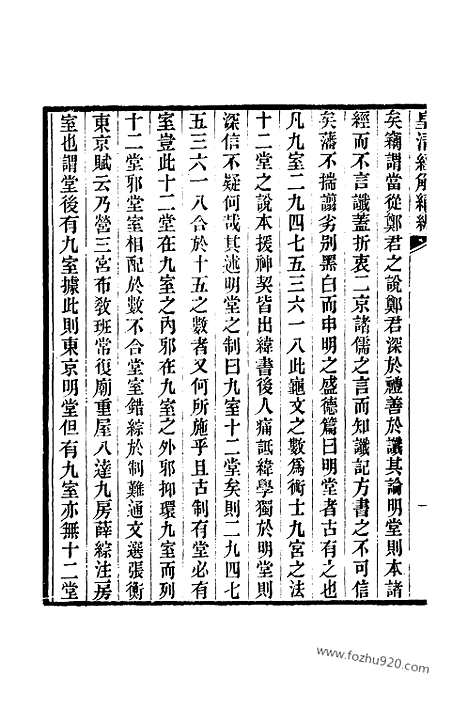 皇清經解續編
矣竊謂當從鄭君之說鄭君深於禮善於讖其論明堂則本諸
經而不言讖蓋折衷二京諸儒之言而知讖記方書之不可信
矣藩不揣譾劣別黑白而申明之盛德篇曰明堂者古有之也
凡九室二九四七五三六一八此龜文之數爲術士九宮之法
十二堂之說本援神契皆出緯書後人痛詆緯學獨於明堂則
深信不疑何哉其述明堂之制曰九室十二堂矣則二九四七
五三六一八合於十五之數者又何所施乎且古制有堂必有
室豈此十二堂在九室之內邪在九室之外邪抑環九室而列
十二堂邪堂室相配於數不合堂室錯綜於制難通文選張衡
東京賦云乃營三宮布敎班常復廟重屋八達九房薛綜注房
室也謂堂後有九室據此則東京明堂但有九室亦無十二堂
一
www.fozhu920.com